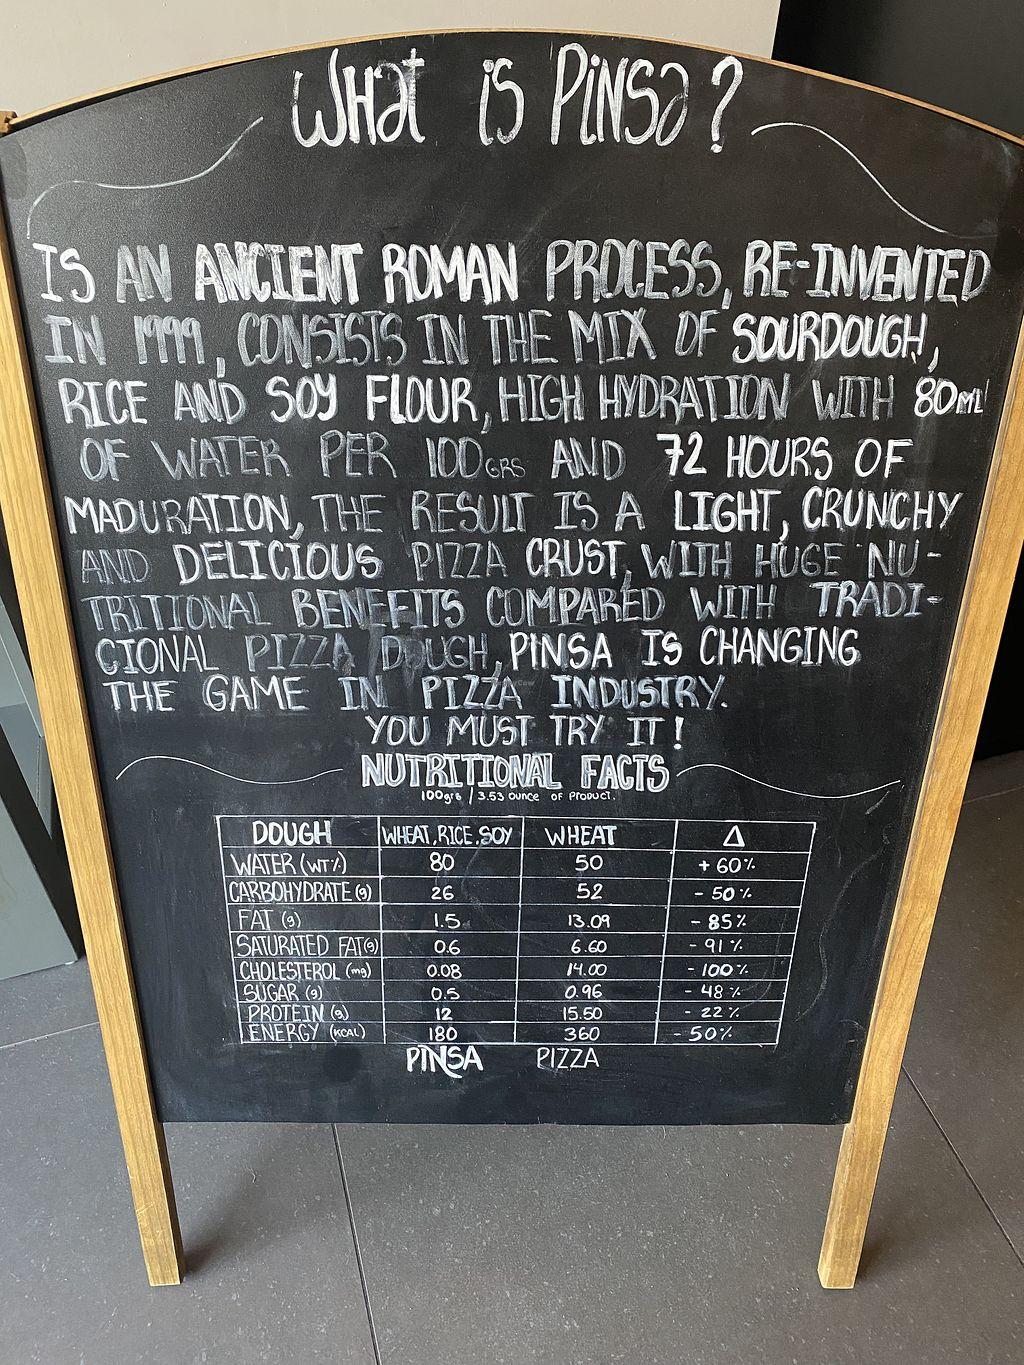 What is Pinsa?
IS AN ANCIENT ROMAN PROCESS, RE-INVENTED
IN 1999, CONSISTS IN THE MIX OF SOURDOUGH,
RICE AND SOY FLOUR, HIGH HYDRATION WITH 80ML
OF WATER PER 100GRS AND 72 HOURS OF
MADURATION, THE RESULT IS A LIGHT, CRUNCHY
AND DELICIOUS PIZZA CRUST, WITH HUGE NU-
TRITIONAL BENEFITS COMPARED WITH TRADI-
CIONAL PIZZA DOUGH, PINSA IS CHANGING
THE GAME IN PIZZA INDUSTRY.
YOU MUST TRY IT!
NUTRITIONAL FACTS
100grs / 3.53 OUNCE OF PRODUCT.
DOUGH WHEAT, RICE, SOY WHEAT Δ
WATER (WT%) 80 50 +60%
CARBOHYDRATE (g) 26 52 -50%
FAT (g) 1.5 13.09 -85%
SATURATED FAT (g) 0.6 6.60 -91%
CHOLESTEROL (mg) 0.08 14.00 -100%
SUGAR (g) 0.5 0.96 -48%
PROTEIN (g) 12 15.50 -22%
ENERGY (KCAL) 180 360 -50%
PINSA PIZZA